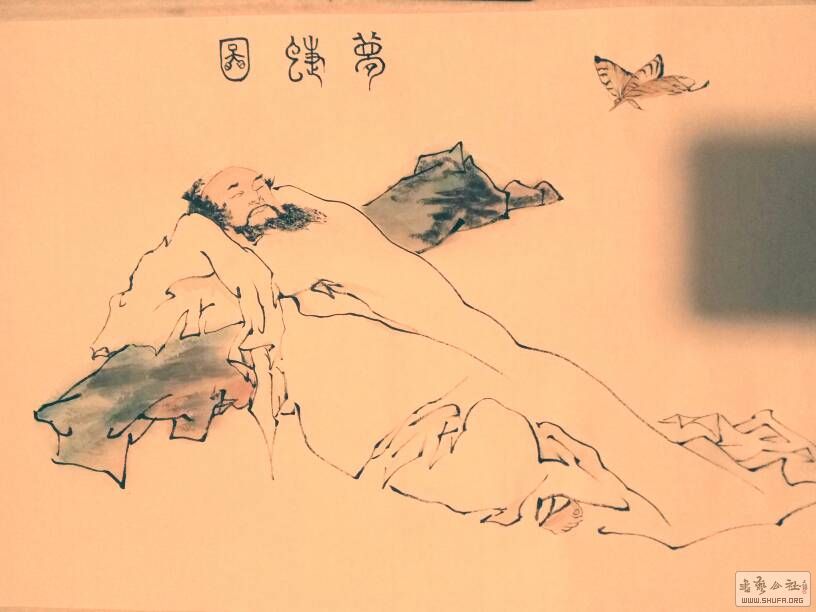 夢蜨圖
書藝公社
WWW.SHUFA.ORG